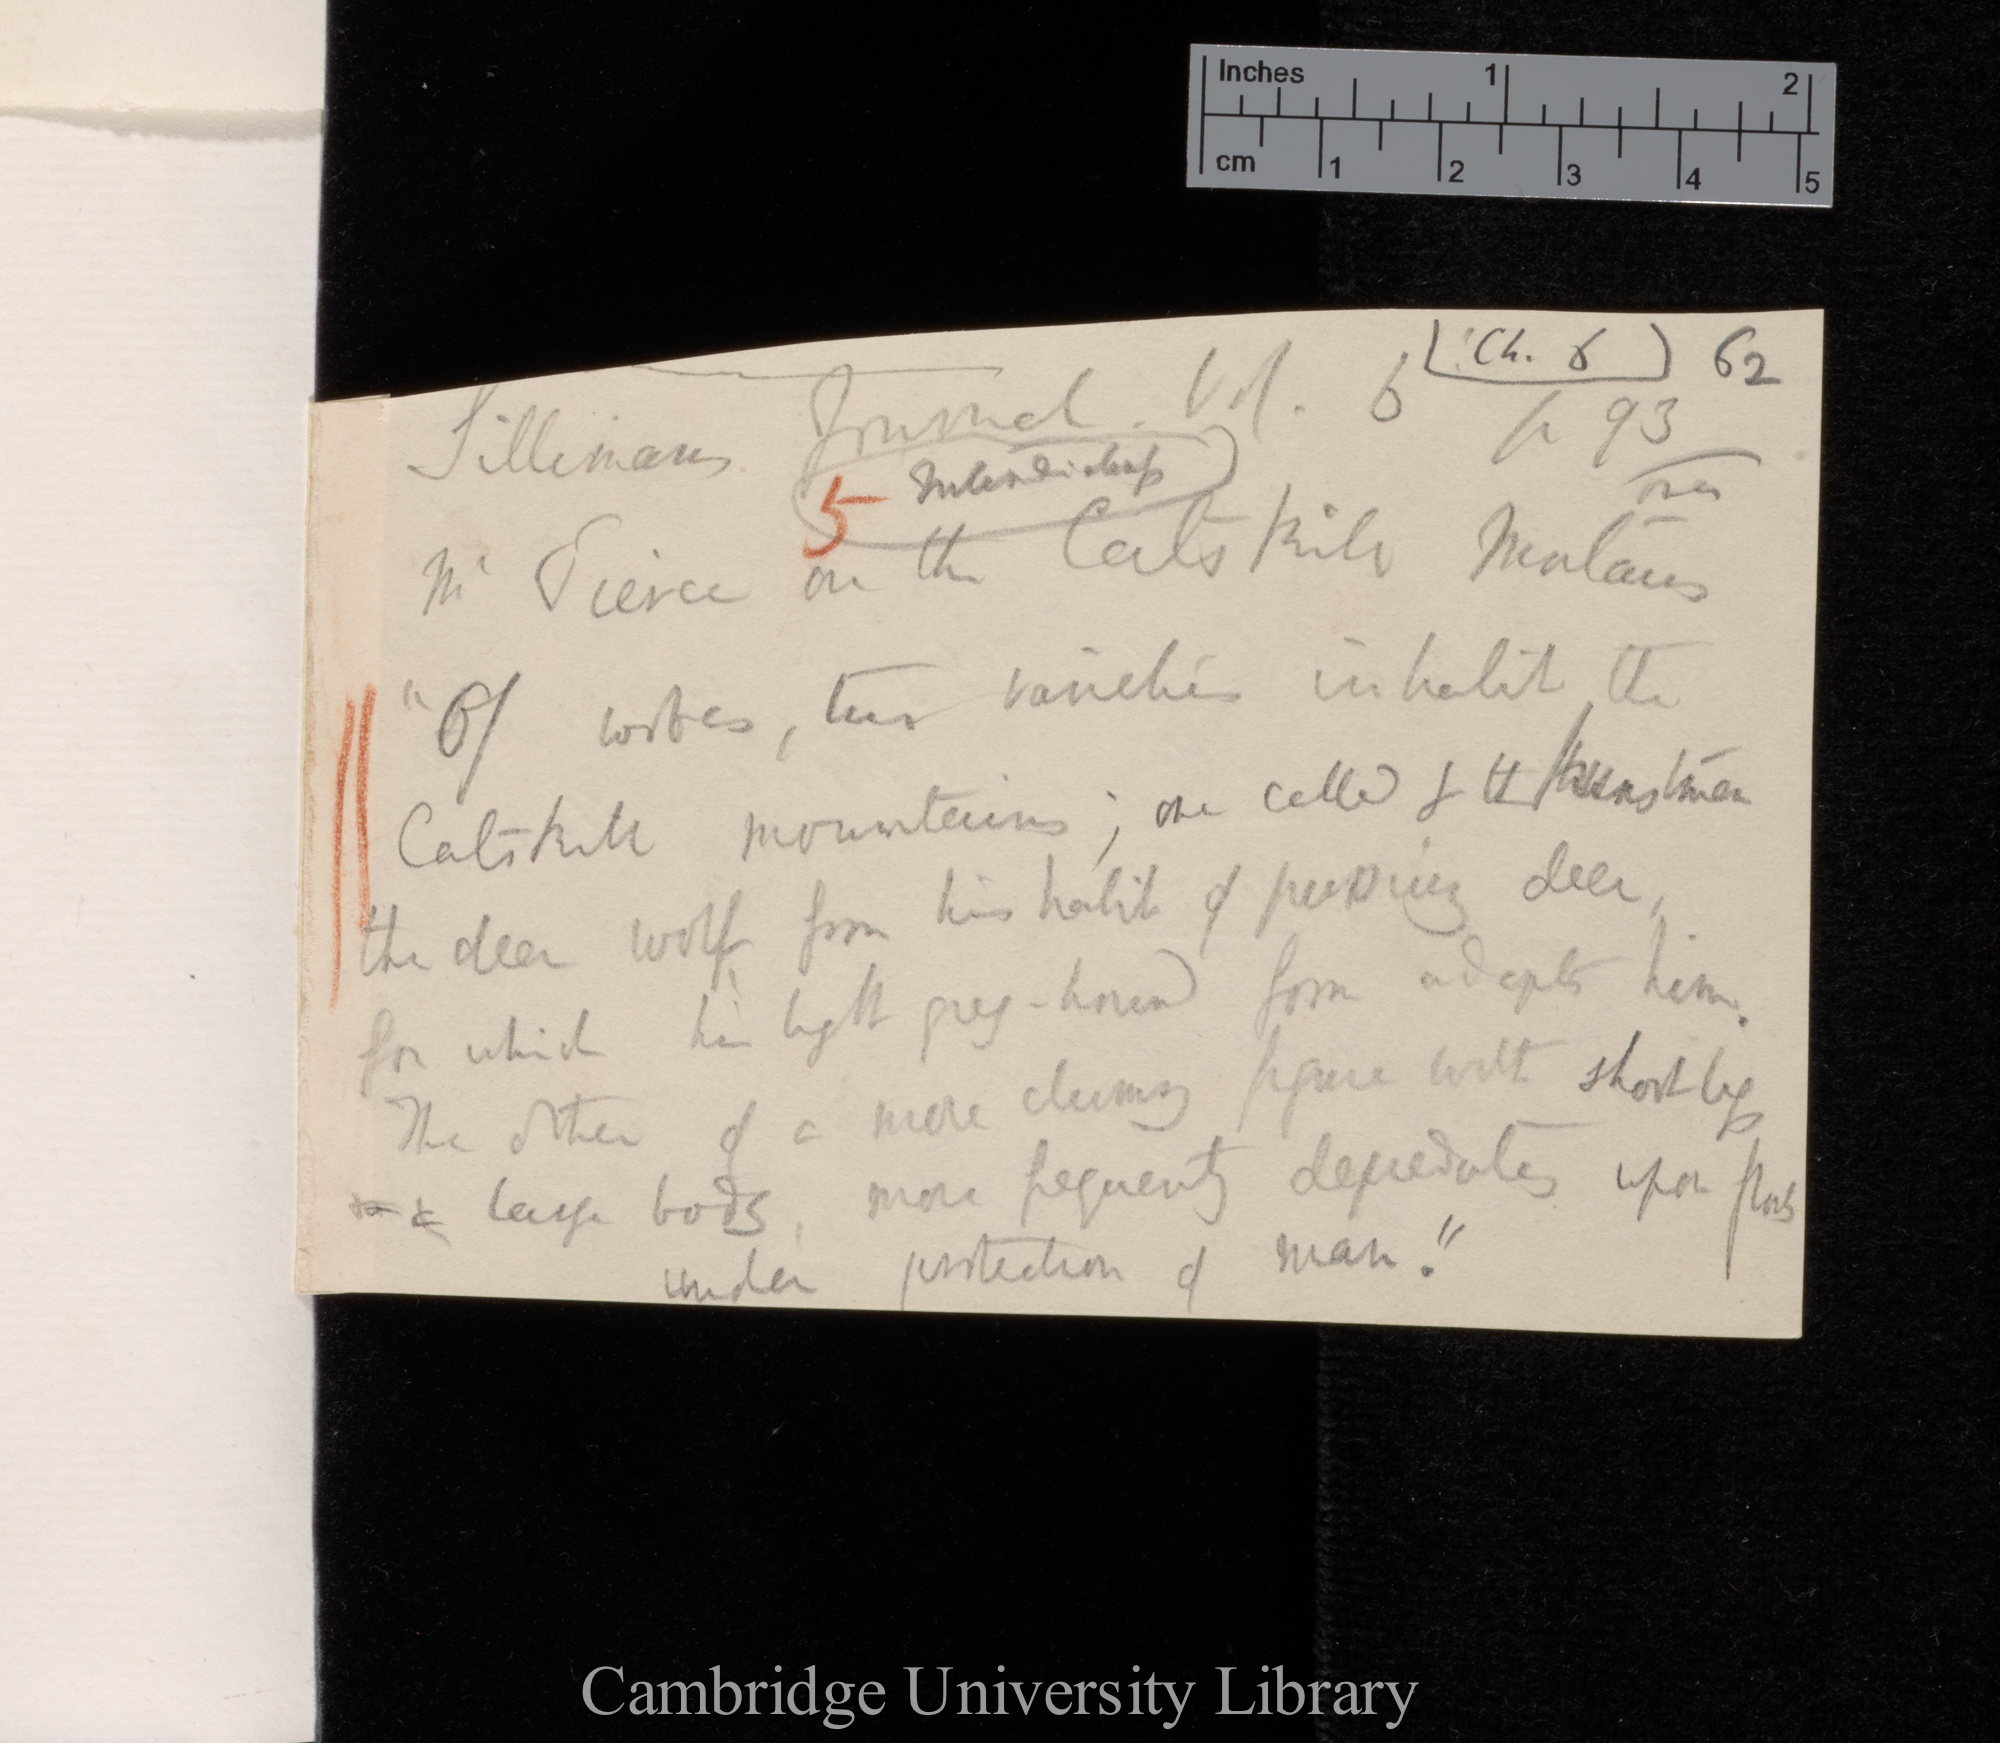 Inches 1 2
cm 1 2 3 4 5
(Ch. 6) 62
Sillimans Journal. Vol. 6 p 93
5 over
Mr Pierce on the Catskill Montains
"Of wolves, two varieties inhabit the
Catskill mountains; one called by the hunstmen
the deer wolf from his habit of pursuing deer,
for which his light grey-hound form adapts him.
The other of a more clumsy figure with short legs
& large body, more frequently depredates upon flocks
under protection of man."
Cambridge University Library